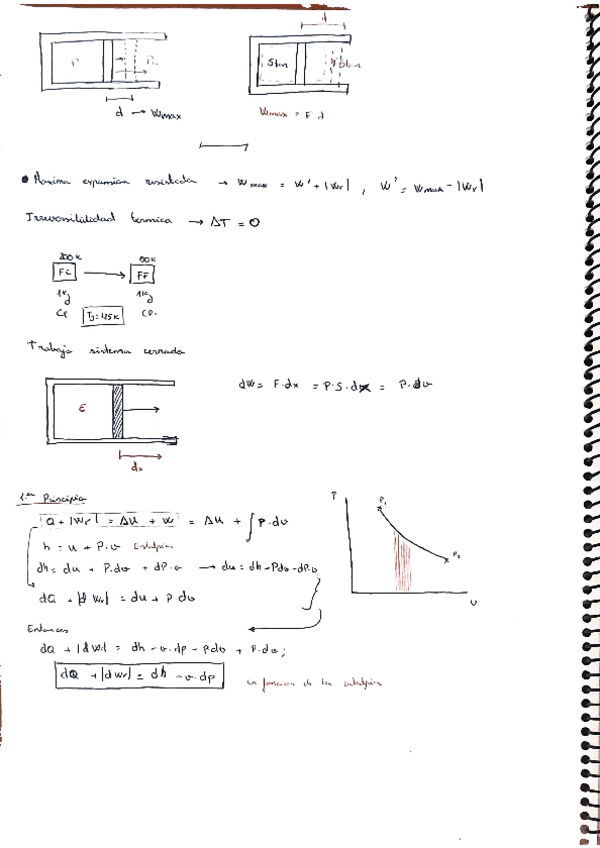 P
d → Wmax
d
5 bar
Wmax = F · d
• Maxima expansion resistada → Wmax = W' + |Wr| ; W' = Wmax - |Wr|
Irreversibilidad termica → ΔT = 0
FC → FF
1kg 1kg
Cp Cp
Trabajo sistema cerrado
E
dx
dW = F·dx = P·S·dx = P·dv
1er Principio
Q + |Wr| = Δu + W = Δu + ∫P·dv
h = u + P·v Entalpia
dh = du + P·dv + dP·v → du = dh - Pdv - dP·v
dQ + |dWr| = du + P·dv
P
P1
P2
v
Entonces
dQ + |dWr| = dh - v·dp - Pdv + P·dv ;
dQ + |dWr| = dh - v·dp
en funcion de la entalpia